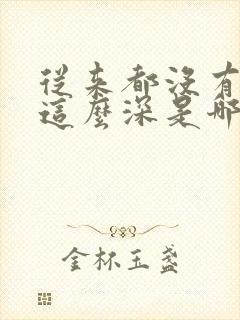 從來都沒有
這麼深是哪
金杯玉盞